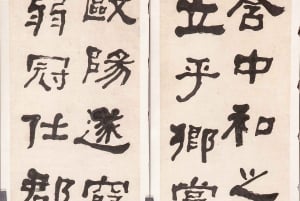 含中和之
立乎鄉黨
歐陽遂窮
弱冠仕郡